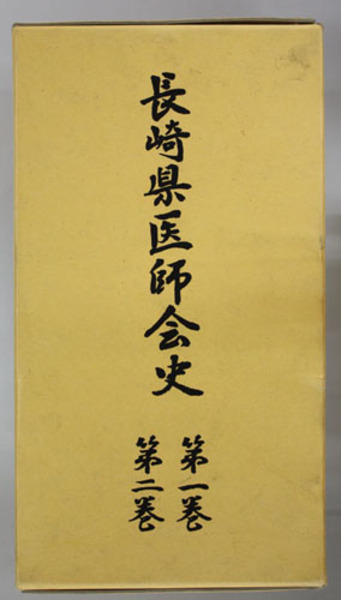 長崎県医師会史
第一巻
第二巻